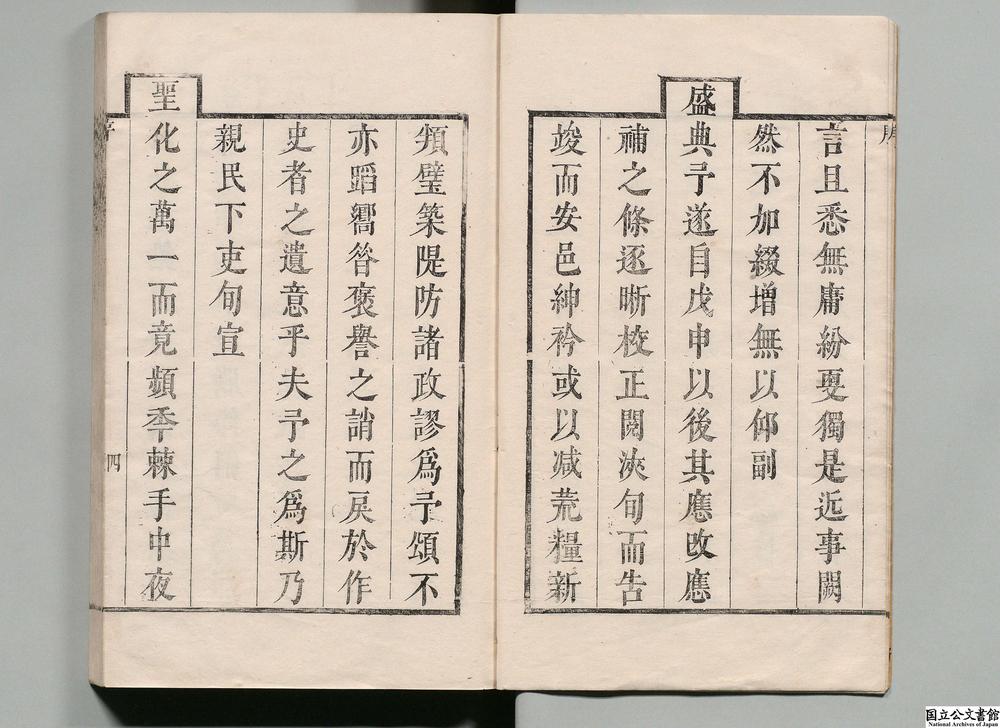 言且悉無庸紛更獨是近事闕
然不加綴增無以仰副
盛典予遂自戊申以後其應改應
補之條逐晰校正閱浹旬而告
竣而安邑紳衿或以减荒糧新
頖璧築隄防諸政謬爲予頌不
亦蹈嚮咎褒譽之誚而戾於作
史者之遺意乎夫予之爲斯乃
親民下吏旬宣
聖化之萬一而竟頻年棘手中夜
四
国立公文書館
National Archives of Japan